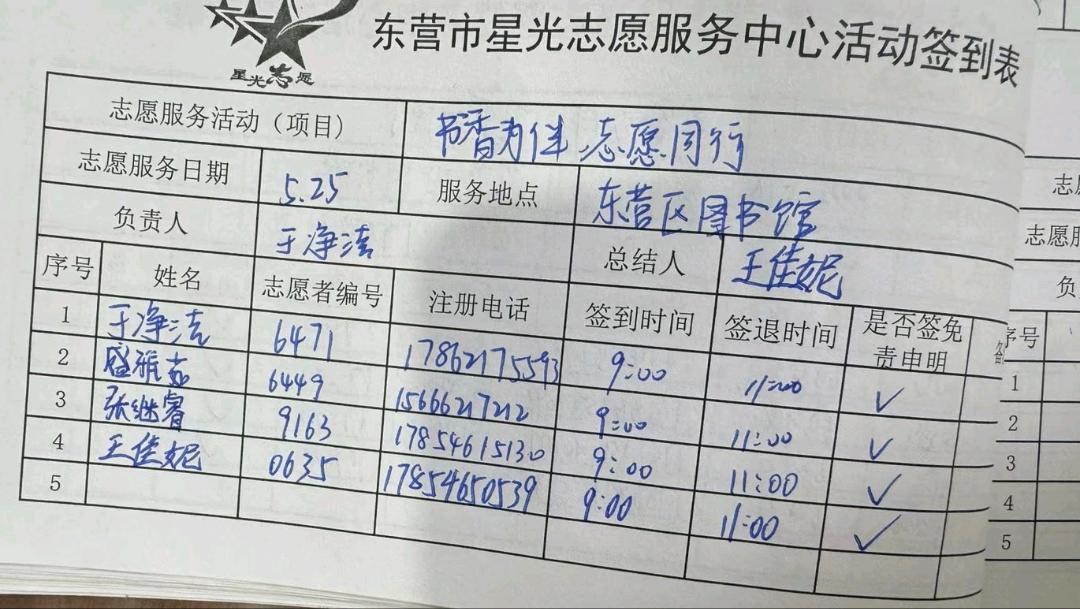 星光志愿
东营市星光志愿服务中心活动签到表
志愿服务活动（项目） 书香为伴 志愿同行
志愿服务日期 5.25 服务地点 东营区图书馆
负责人 于净洁 总结人 王佳妮
序号 姓名 志愿者编号 注册电话 签到时间 签退时间 是否签免责申明
1 于净洁 6471 17862175593 9:00 11:00 ✓
2 盛雅茹 6449 15666217212 9:00 11:00 ✓
3 张继睿 9163 17854615130 9:00 11:00 ✓
4 王佳妮 0635 17854650539 9:00 11:00 ✓
5
志愿
志愿服
负
序号
1
2
3
4
5